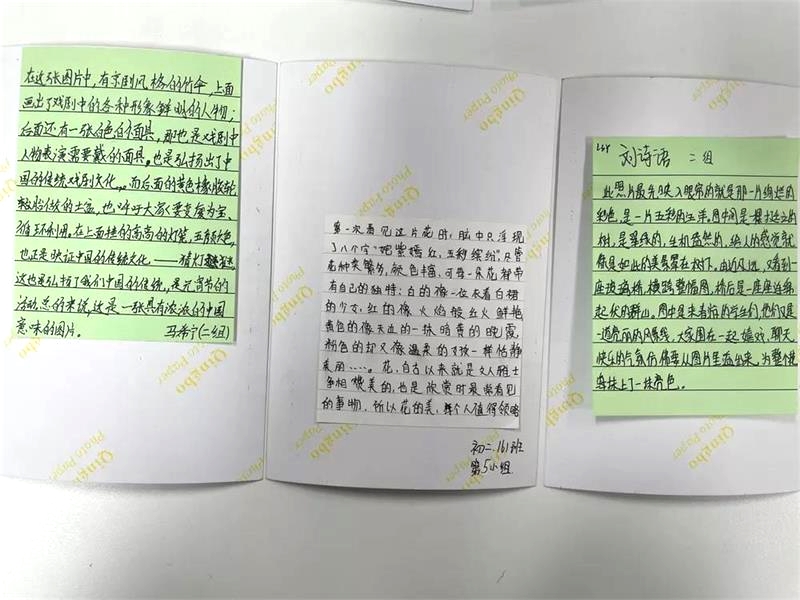 在这张图片中，有京剧风格的竹伞，上面
画出了戏剧中的各种形象鲜明的人物；
后面还有一张白色的面具，那也是戏剧中
人物表演需要戴的面具。也是弘扬出了中
国的传统戏剧文化。而后面的黄色橡胶轮
胎做的土盆，也呼吁大家要变废为宝、
循环利用。在上面挂的高高的灯笼，五颜六色，
也正是映证中国的传统文化——猜灯谜
这也是弘扬了我们中国的传统，是元宵节的
活动。总的来说，这是一张具有浓浓的中国
意味的图片。 马希宁（二组）
第一次看见这片花时，脑中只浮现
了八个字“姹紫嫣红，五彩缤纷”。尽管
花种类繁多，颜色丰富，可每一朵花都带
有自己的独特：白的像一位衣着白裙
的少女，红的像火焰般红火鲜艳
黄色的像天边的一抹暗黄的晚霞
粉色的却又像温柔的女孩一样恬静
美丽……。花，自古以来就是文人骚士
争相赞美的，也是欣赏时最常看见
的事物，所以花的美，每个人值得领略
初二.161班
第5小组
LSY 刘诗语 二组
此照片最先映入眼帘的就是那一片绚烂的
彩色，是一片五彩的花海。图中间是一棵挺立的
树，是翠绿的，生机盎然的，给人的感觉就
像是如此的美景聚在树下。由近及远，又看到一
座玻璃桥，横跨整幅图，桥后是一座座连绵
起伏的群山。图中是来春游的学生们，他们又是
一道亮丽的风景线。大家围在一起嬉戏、聊天，
快乐的气氛仿佛要从图片里溢出来，为整幅
画抹上了一抹亮色。
Qingbo
Photo Paper